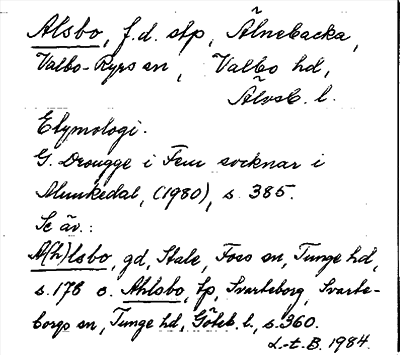 Alsbo, f.d. stp, Ålnebacka,
Valbo-Ryrs sn, Valbo hd,
Älvsb. l.
Etymologi.
G. Drougge i Fem socknar i
Munkedal, (1980), s. 385.
Se äv.:
A(h)lsbo, gd, Stale, Foss sn, Tunge hd,
s. 178 o. Ahlsbo, tp, Svarteborg, Svarte-
borgs sn, Tunge hd, Göteb. l., s. 360.
L-t. B. 1984.